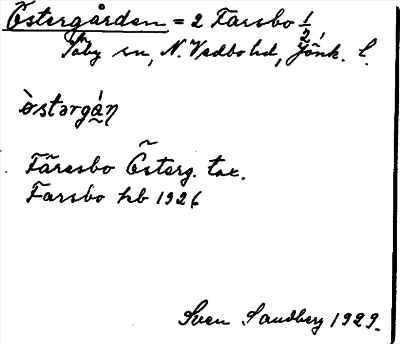 Östergården = 2 Farsbo 1/2
Säby sn, N. Vedbo hd, Jönk. l.
òstərgá̰ɳ
Färesbo Österg. tax.
Farsbo hb 1926
Sven Sandberg 1929.